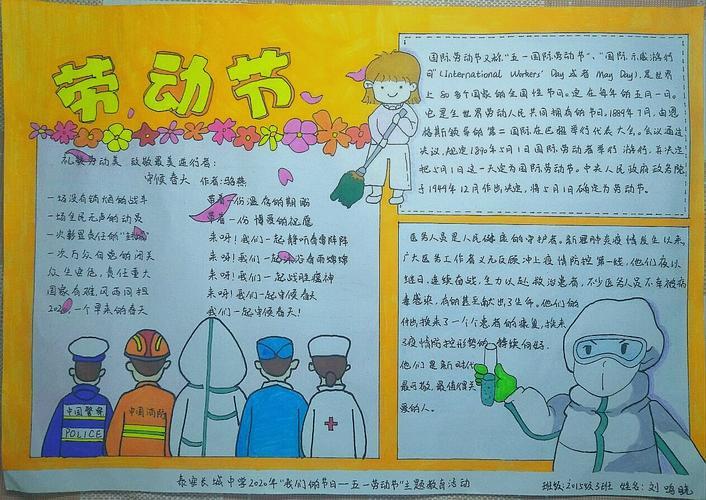 劳动节
礼赞劳动美 致敬最美逆行者:
守候春天 作者:骆燕
一场没有硝烟的战斗
一场全民无声的动员
一次彰显责任的"封城"
一次万众白色的闭关
众生
责任重大
国家有难,风雨同担
2020,一个早来的春天
一份温存的期盼
一份博爱的祝愿
来呀!我们一起静听春雷阵阵
来呀!我们一起沐浴春雨绵绵
来呀!我们一起战胜瘟神
来呀!我们一起守候春天
我们一起守候春天!
中国警察
POLICE
中国消防
国际劳动节又称"五一国际劳动节"、"国际示威游行
日"(International Workers' Day或者May Day),是世界
上80多个国家的全国性节日。定在每年的五月一日。
它是全世界劳动人民共同拥有的节日。1889年7月,由恩
格斯领导的第二国际在巴黎举行代表大会。会议通过
决议,规定1890年5月1日国际劳动者举行游行,并决定
把5月1日这一天定为国际劳动节。中央人民政府政务院
于1949年12月作出决定,将5月1日确定为劳动节。
医务人员是人民健康的守护者。新冠肺炎疫情发生以来,
广大医务工作者义无反顾冲上疫情防控第一线,他们夜以
继日,连续奋战,全力以赴救治患者,不少医务人员不幸被病
毒感染,有的甚至献出了生命。他们的
付出换来了一个个患者的康复,换来
了疫情防控形势的持续向好。
他们是新时代
最可敬、最值得关
爱的人。
泰安长城中学2020年"我们的节日—五一劳动节"主题教育活动
班级:2015级3班 姓名:刘鸣晓